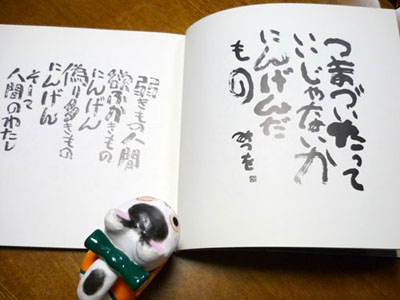 つまづいたって
いいじゃないか
にんげんだ
もの
みつを
弱きもの人間
欲ふかきもの
にんげん
偽り多きもの
にんげん
そして
人間のわたし